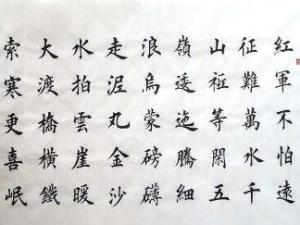 紅軍不怕遠
征難萬水千
山衹等閑五
嶺逶迤騰細
浪烏蒙磅礴
走泥丸金沙
水拍雲崖暖
大渡橋橫鐵
索寒更喜岷